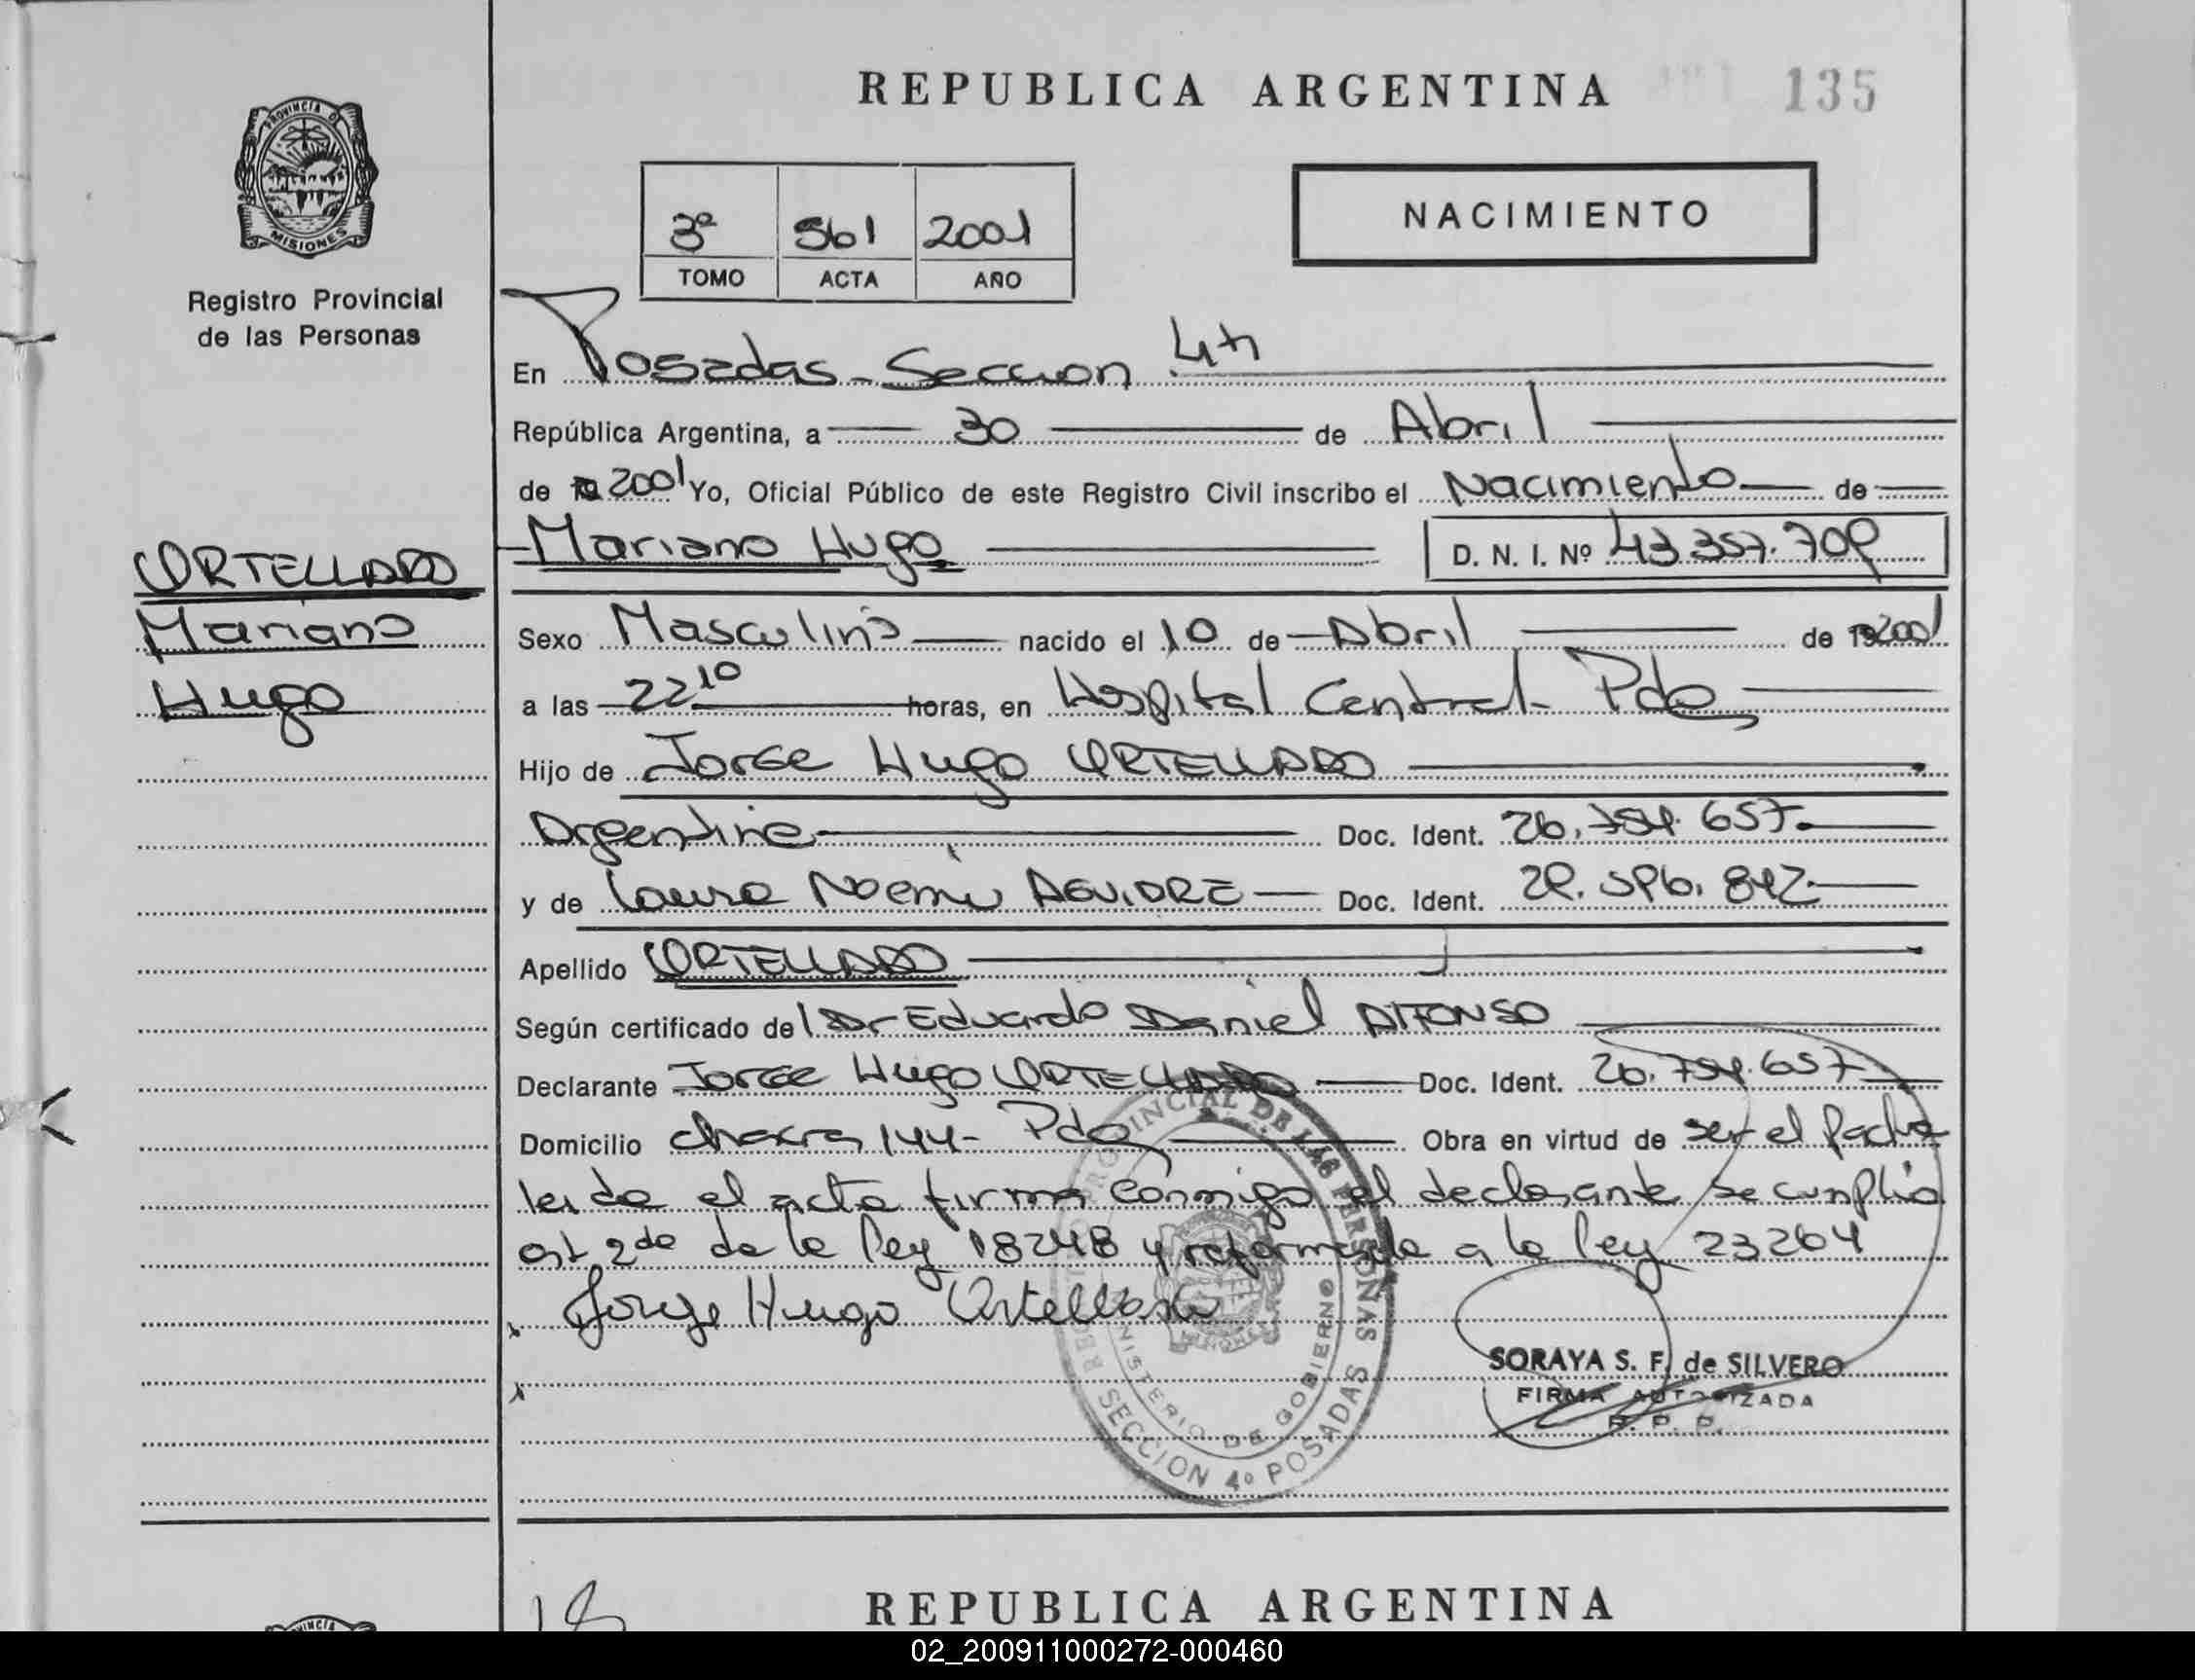 REPUBLICA ARGENTINA
135
PROVINCIA D
MISIONES
Registro Provincial
de las Personas
3º 561 2001
TOMO ACTA AÑO
NACIMIENTO
En Posadas - Seccion 4ta
República Argentina, a 30 de Abril
de 2001 Yo, Oficial Público de este Registro Civil inscribo el Nacimiento de
Mariano Hugo D. N. I. Nº 43.357.709
ORTELLADO
Mariano
Hugo
Sexo Masculino nacido el 10 de Abril de 2001
a las 22 10 horas, en Hospital Central Pdas
Hijo de Jorge Hugo ORTELLADO
Argentina Doc. Ident. 26.754.657.
y de Laura Noemi AGUIRRE Doc. Ident. 29.596.842
Apellido ORTELLADO
Según certificado del Dr Eduardo Daniel
Declarante Jorge Hugo ORTELLADO Doc. Ident. 26.754.657
Domicilio chacra 144 - Pdas Obra en virtud de ser el padre
leida el acta firma conmigo el declarante se cumplio
art 2do de la ley 18248 y reformada a la ley 23264
Jorge Hugo Ortellado
PROVINCIAL DE LAS PERSONAS
MINISTERIO DE GOBIERNO
SECCION 4º POSADAS
SORAYA S. F. de SILVERO
FIRMA AUTORIZADA
R. P. P.
REPUBLICA ARGENTINA
02_200911000272-000460